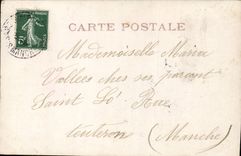 CARTE POSTALE
Mademoiselle Marie
Vallès chez ses parent
Saint Lô Rue
(Manche)